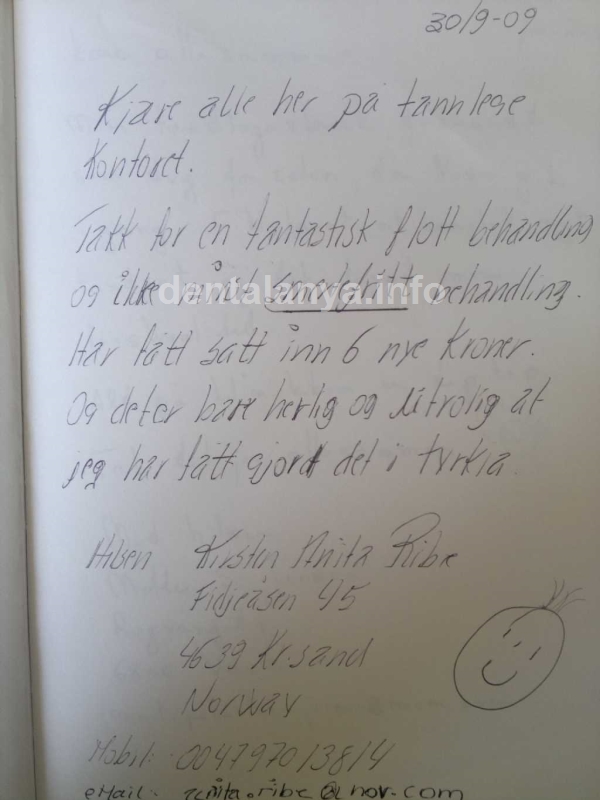 30/9-09
Kjære alle her på tannlege
Kontoret.
Takk for en fantastisk flott behandling
og ikke minst smertefritt behandling.
dentalanya.info
Har fått satt inn 6 nye Kroner.
Og det er bare herlig og utrolig at
jeg har fått gjort det i tyrkia.
Hilsen Kirsten Anita Ribe
Fidjeåsen 45
4639 Kr.sand
Norway
Mobil: 004797013814
eMail: anita.ribe@nov.com